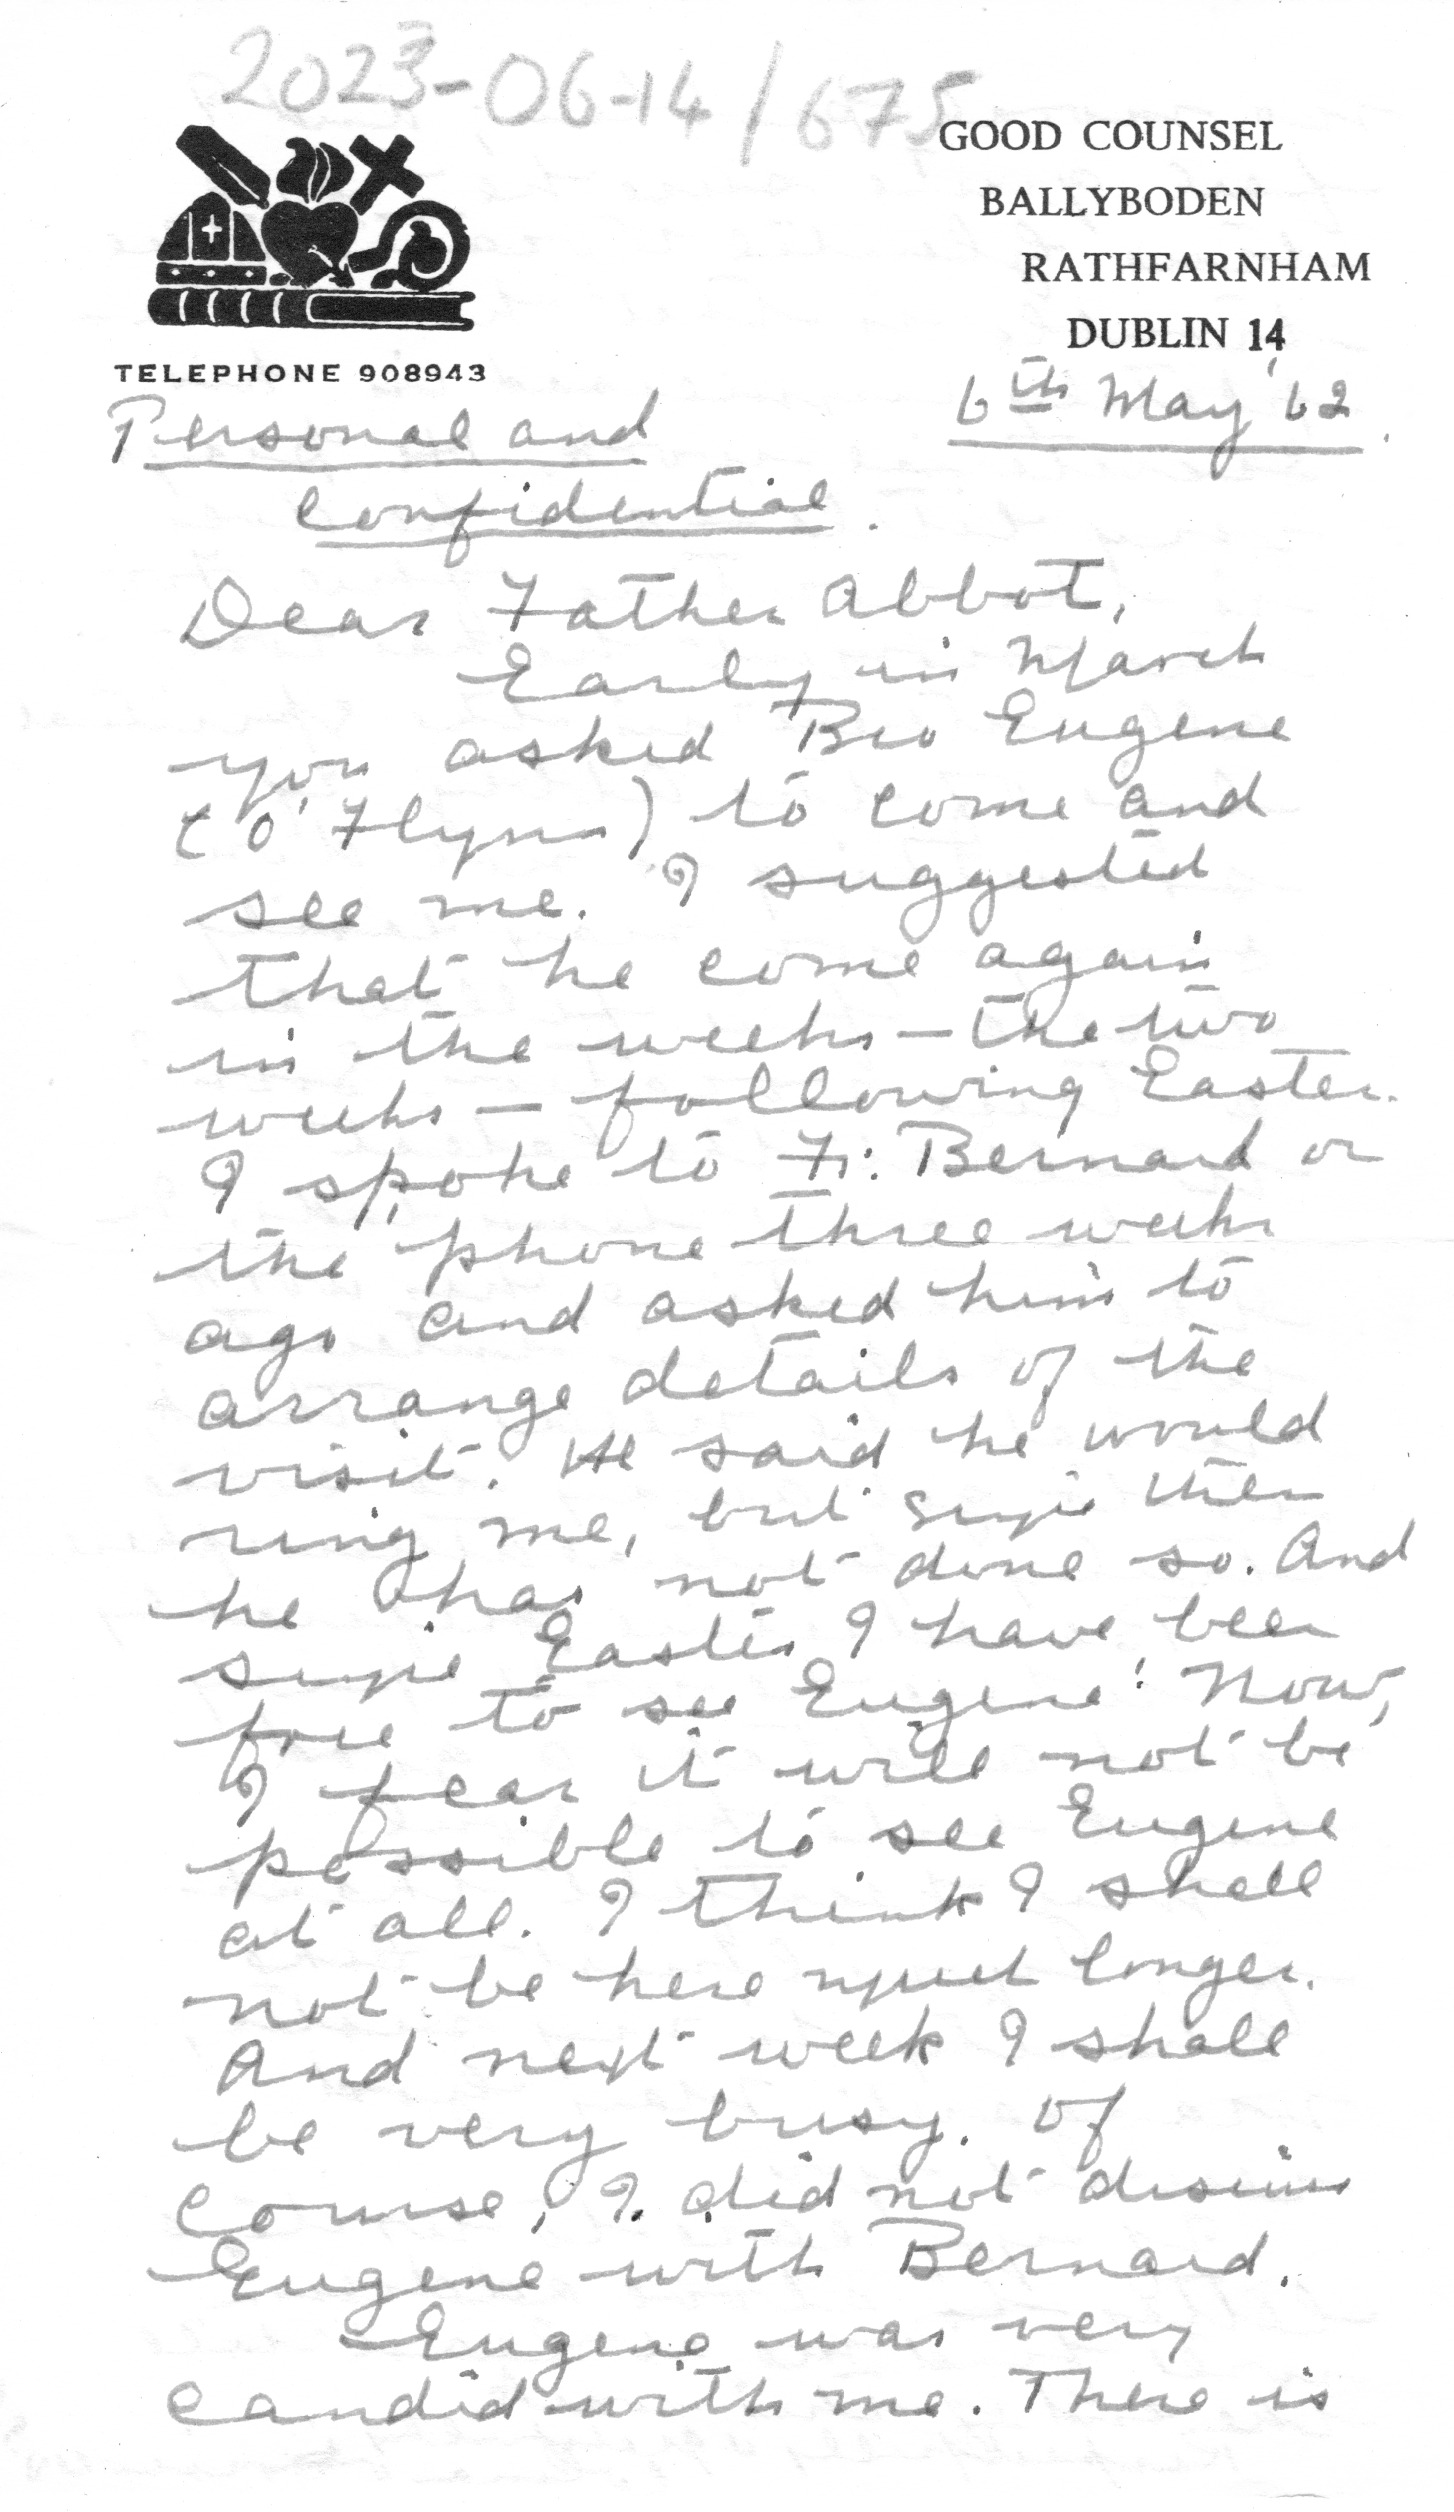 2023-06-14/675
GOOD COUNSEL
BALLYBODEN
RATHFARNHAM
DUBLIN 14
TELEPHONE 908943
6th May '62.
Personal and
Confidential.
Dear Father Abbot,
Early in March
you asked Bro Eugene
(O'Flynn) to come and
see me. I suggested
that he come again
in the weeks — the two
weeks — following Easter.
I spoke to Fr: Bernard on
the 'phone three weeks
ago and asked him to
arrange details of the
visit. He said he would
ring me, but since then
he has not done so. And
since Easter I have been
free to see Eugene! Now,
I fear it will not be
possible to see Eugene
at all. I think I shall
not be here much longer.
And next week I shall
be very busy. Of
course, I did not discuss
Eugene with Bernard.
Eugene was very
candid with me. There is